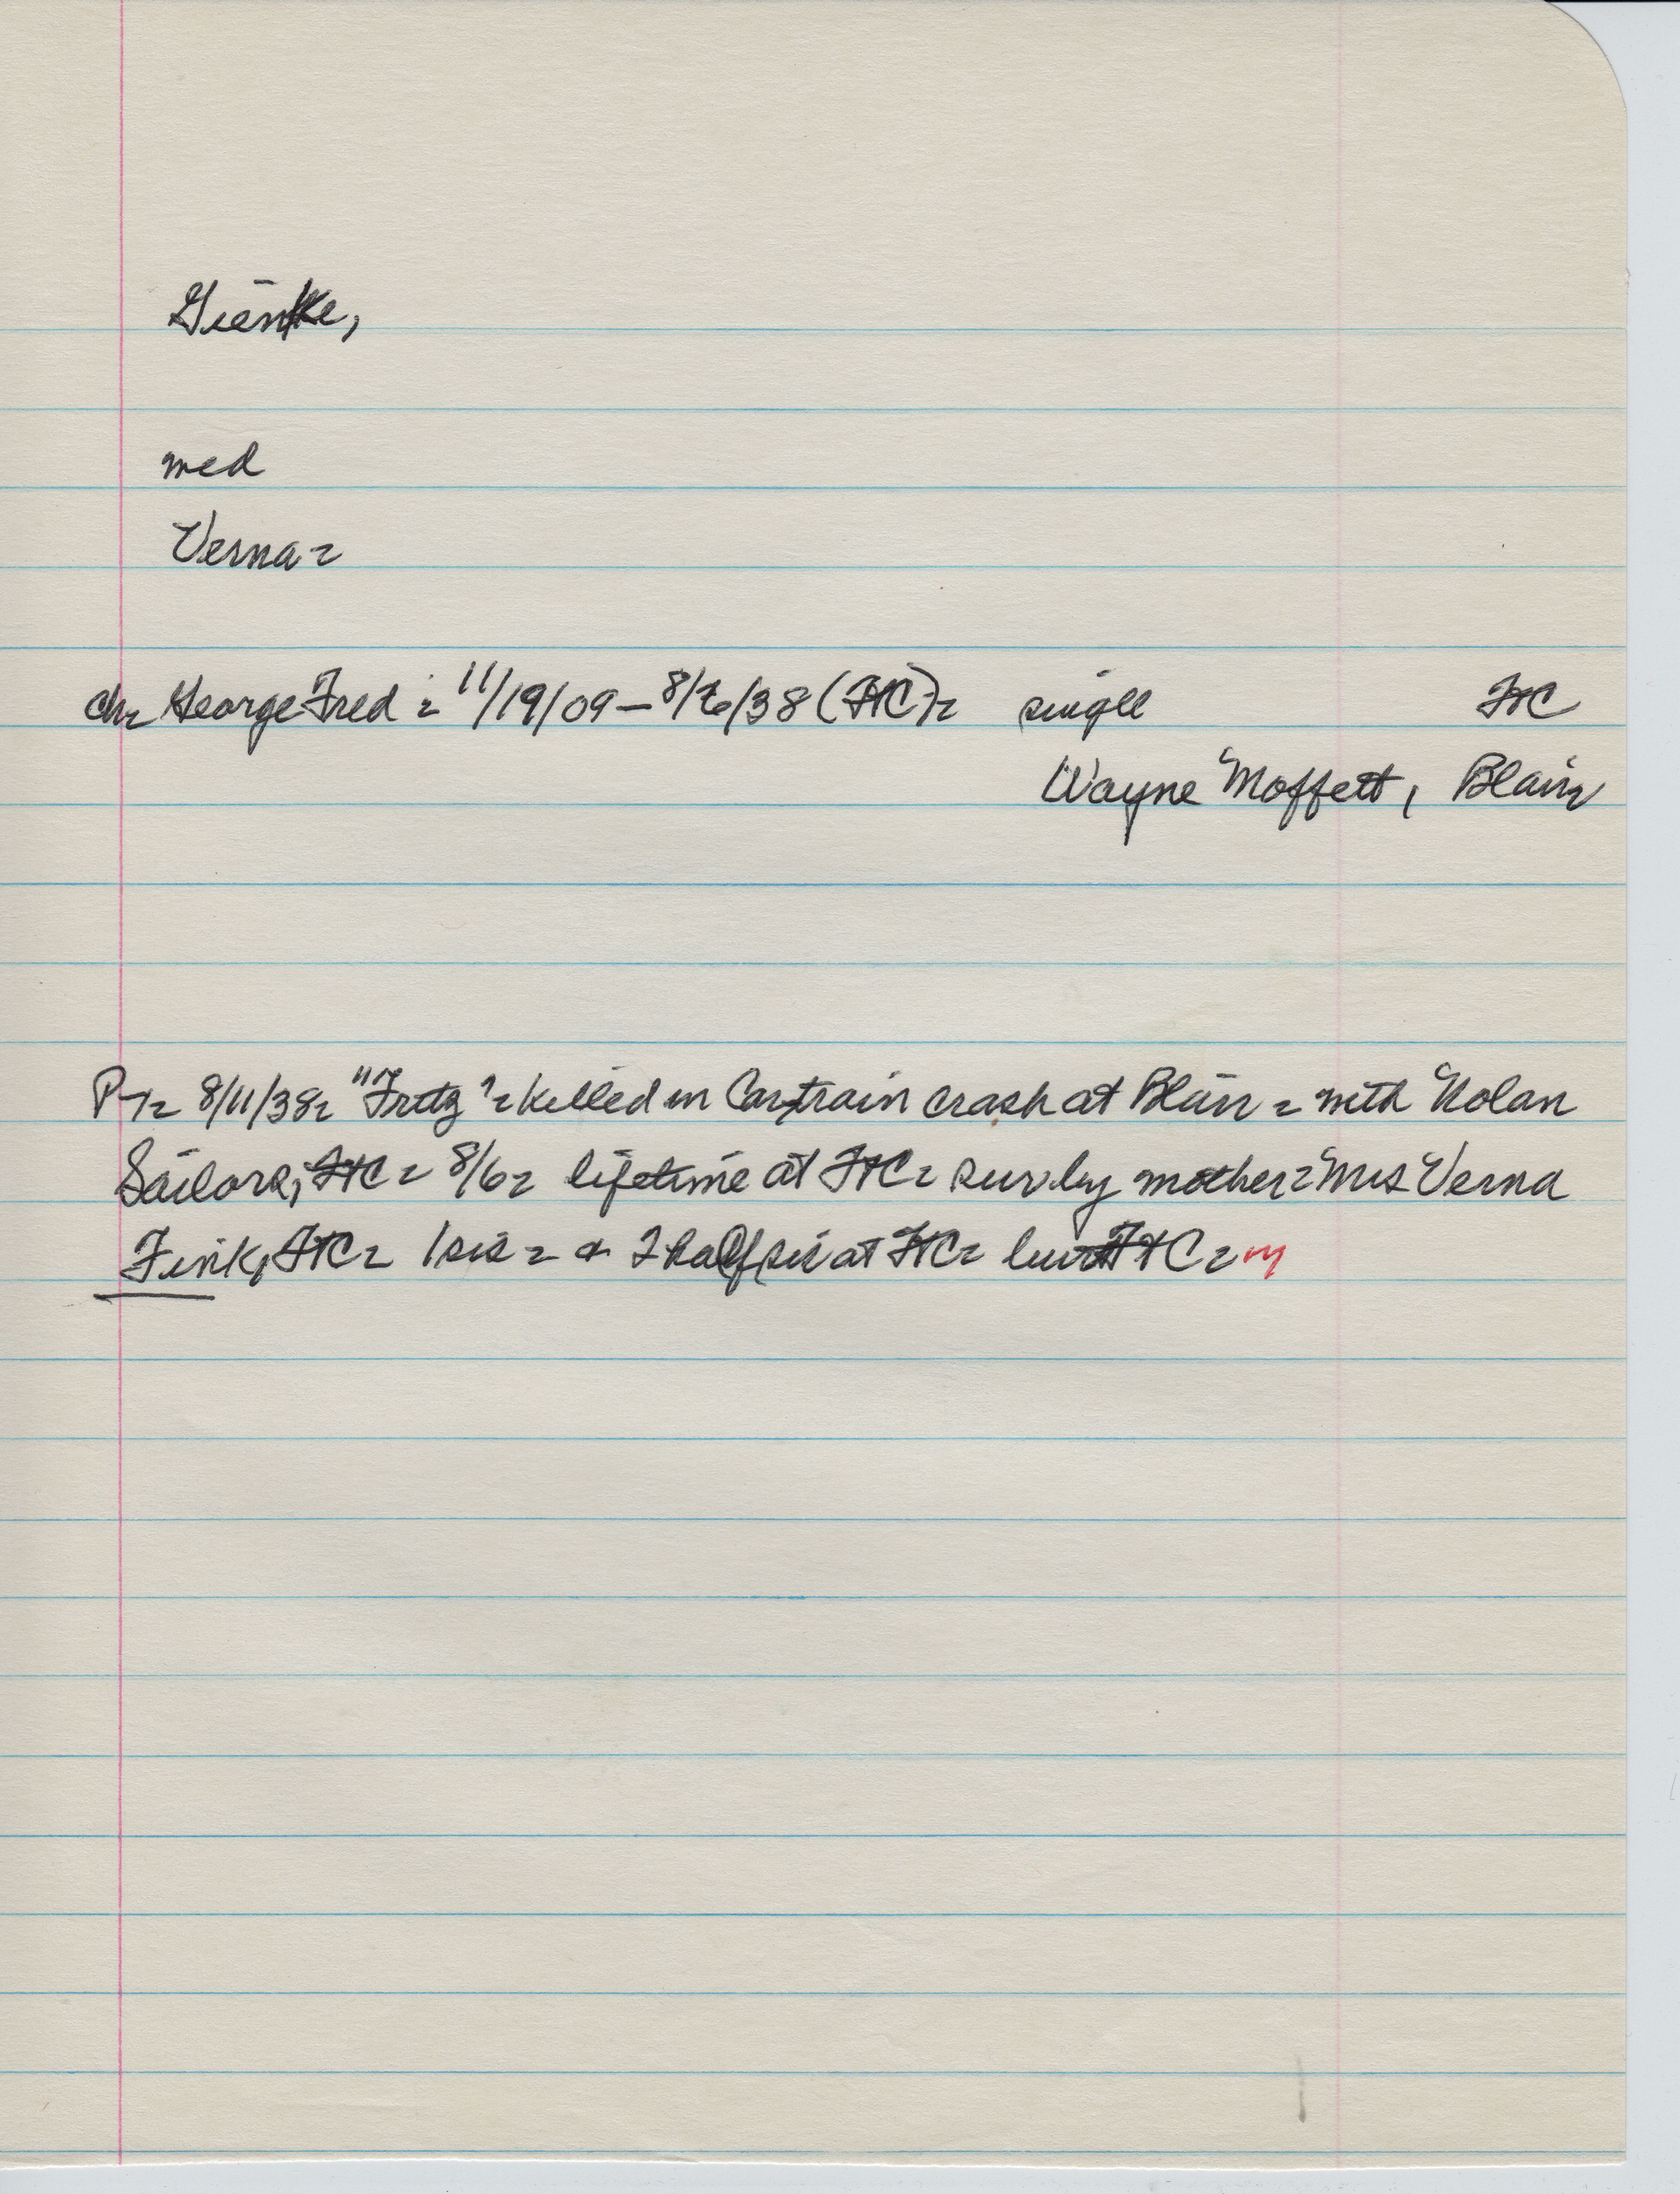 Gienke,
med
Verna =
ch = George Fred = 11/19/09 – 8/6/38 (FtC) = single FtC
Wayne Moffett, Blair
P-T= 8/11/38= "Fritz" = killed in Car, train crash at Blair = with Nolan
Sailors, FtC = 8/6= lifetime at FtC = surv by mother = Mrs Verna
Fink, FtC = 1 sis = & 2 half sis at FtC = FtC =